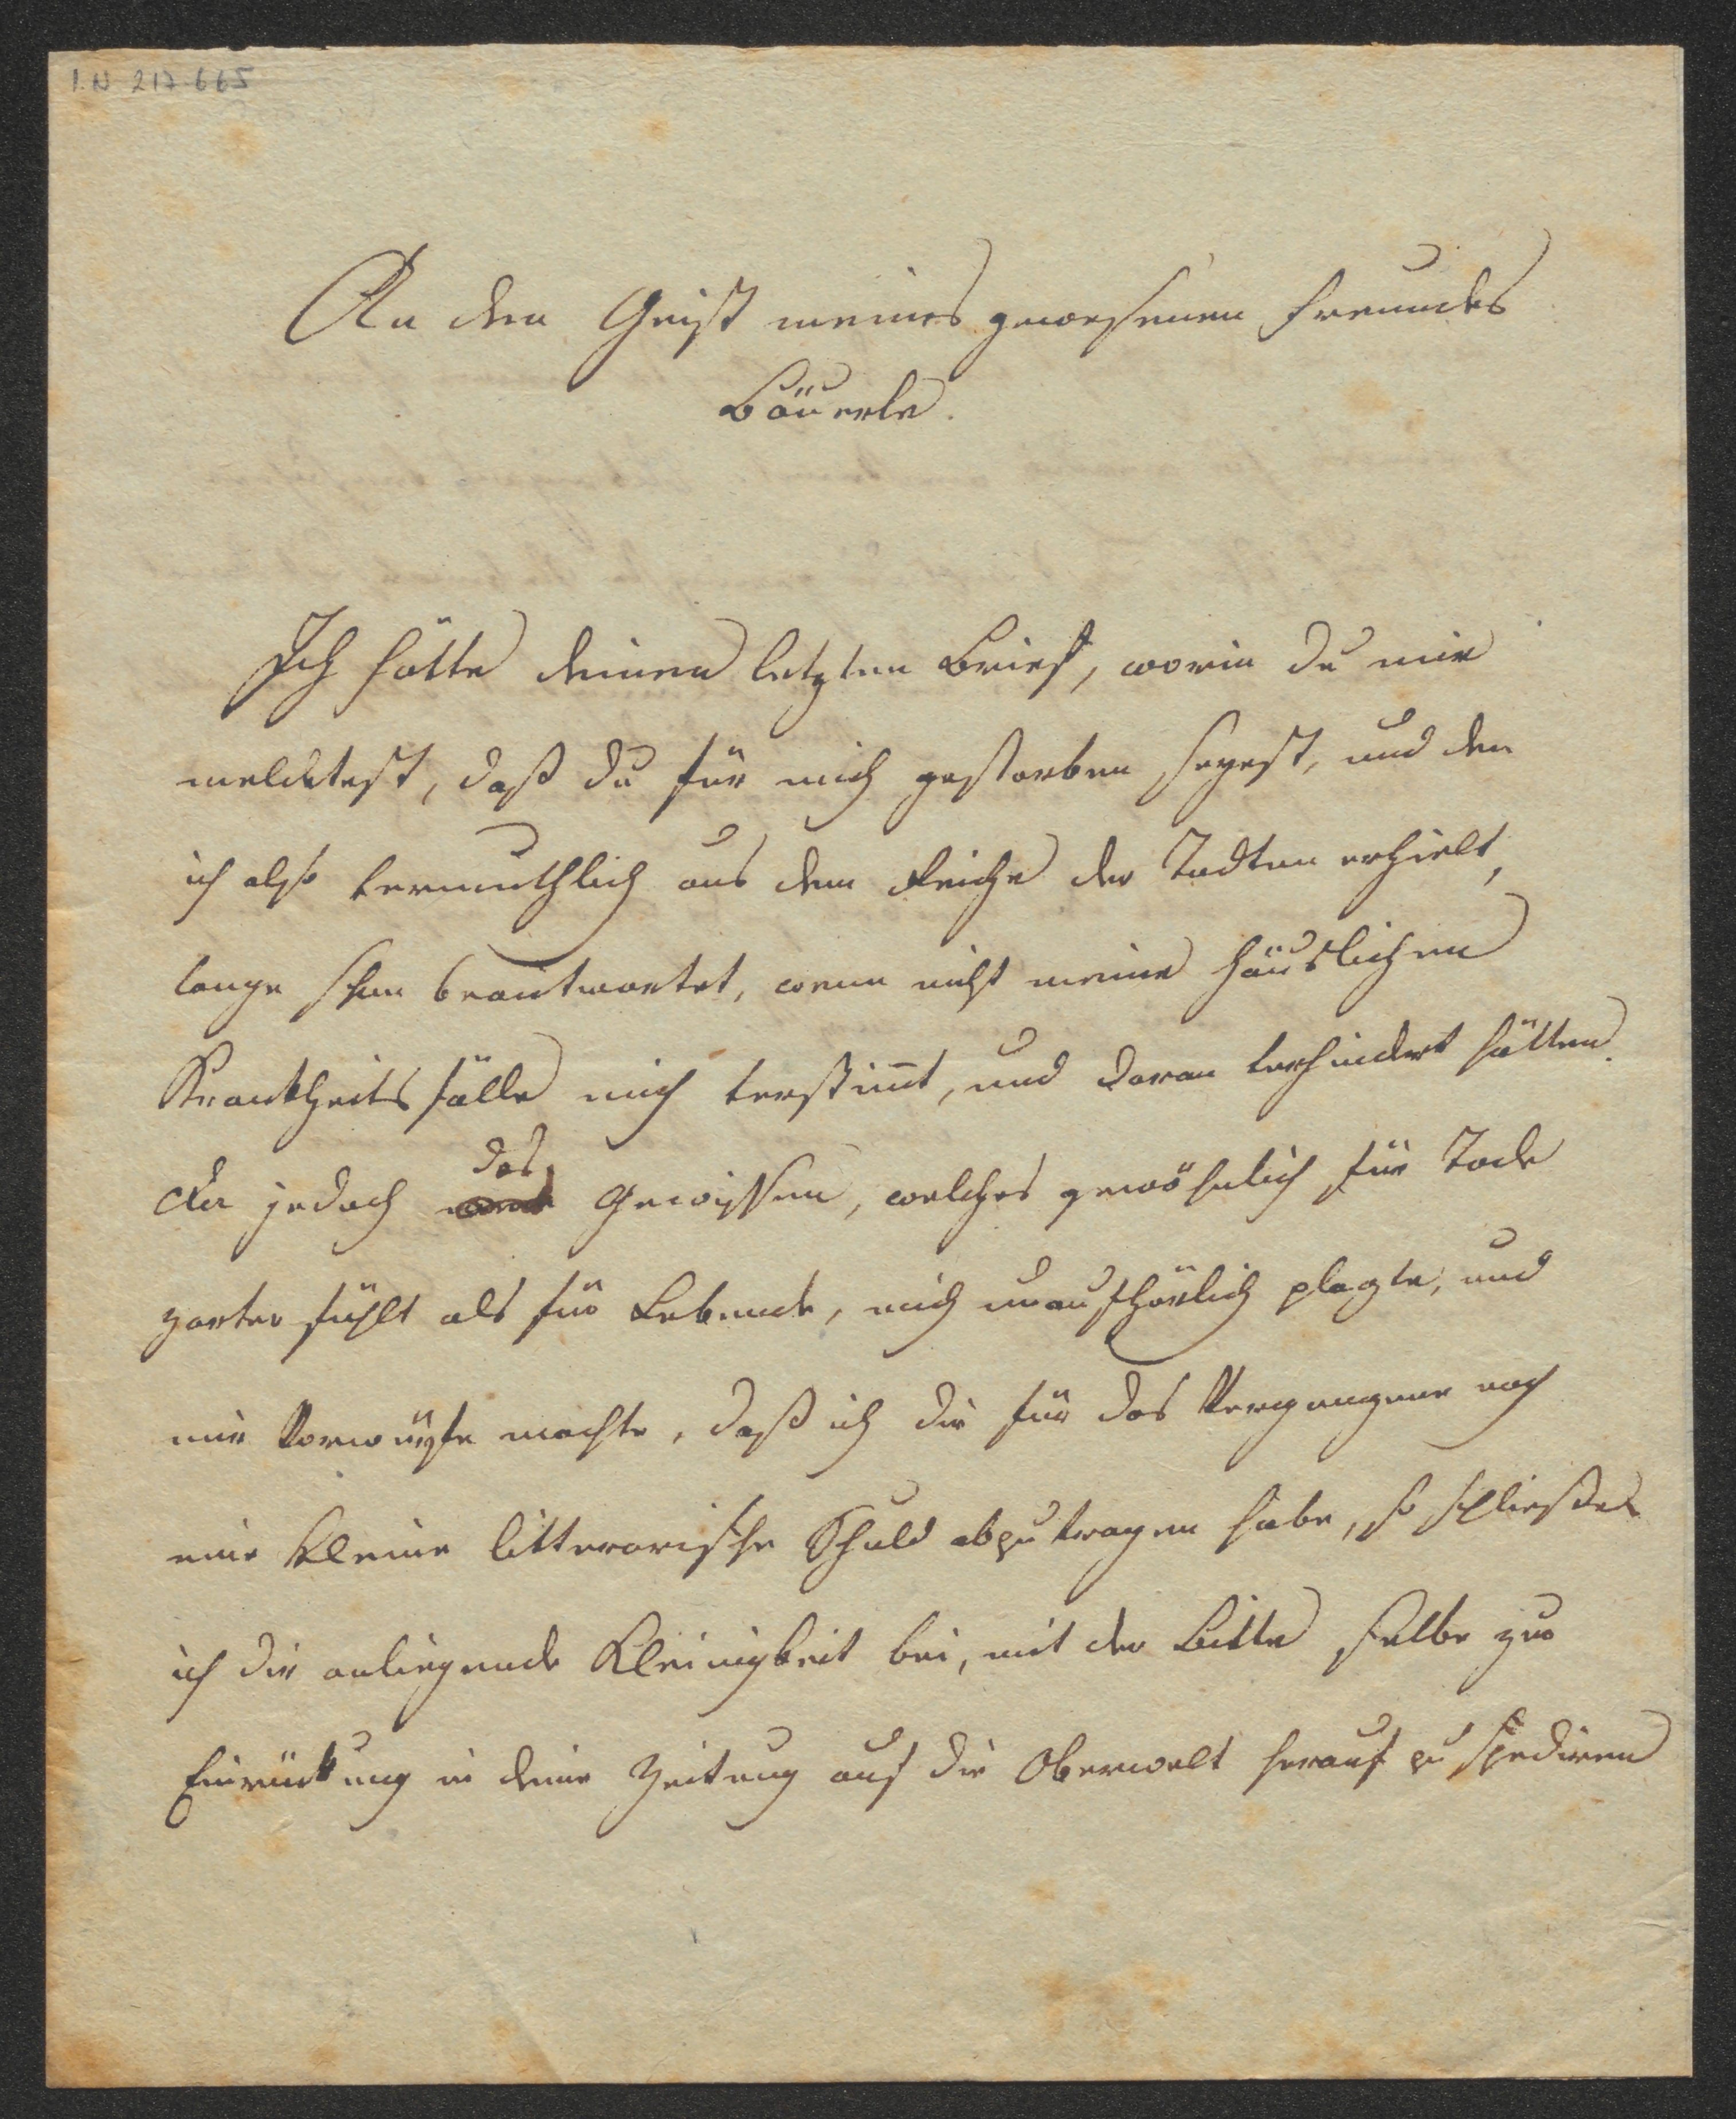 I.N 217.665
An den Geist meines gewesenen Freundes
Bäuerle.
Ich hätte deinen letzten Brief, worin du mir
meldetest, daß du für mich gestorben seyest, und den
ich also vermuthlich aus dem Reiche der Todten erhielt,
lange schon beantwortet, wenn nicht meine häuslichen
Krankheitsfälle mich verstimt, und daran verhindert hätten.
das
Da jedoch Gewissen, welches gewöhnlich für Tode
zarter fühlt als für Lebende, mich unaufhörlich plagte, und
mir Vorwürfe machte, daß ich dir für das Vergangene noch
eine kleine litterarische Schuld abzutragen habe, so schließe
ich dir anliegende Kleinigkeit bei, mit der Bitte selbe zur
Einrückung in deine Zeitung auf die Oberwelt herauf zu spediren